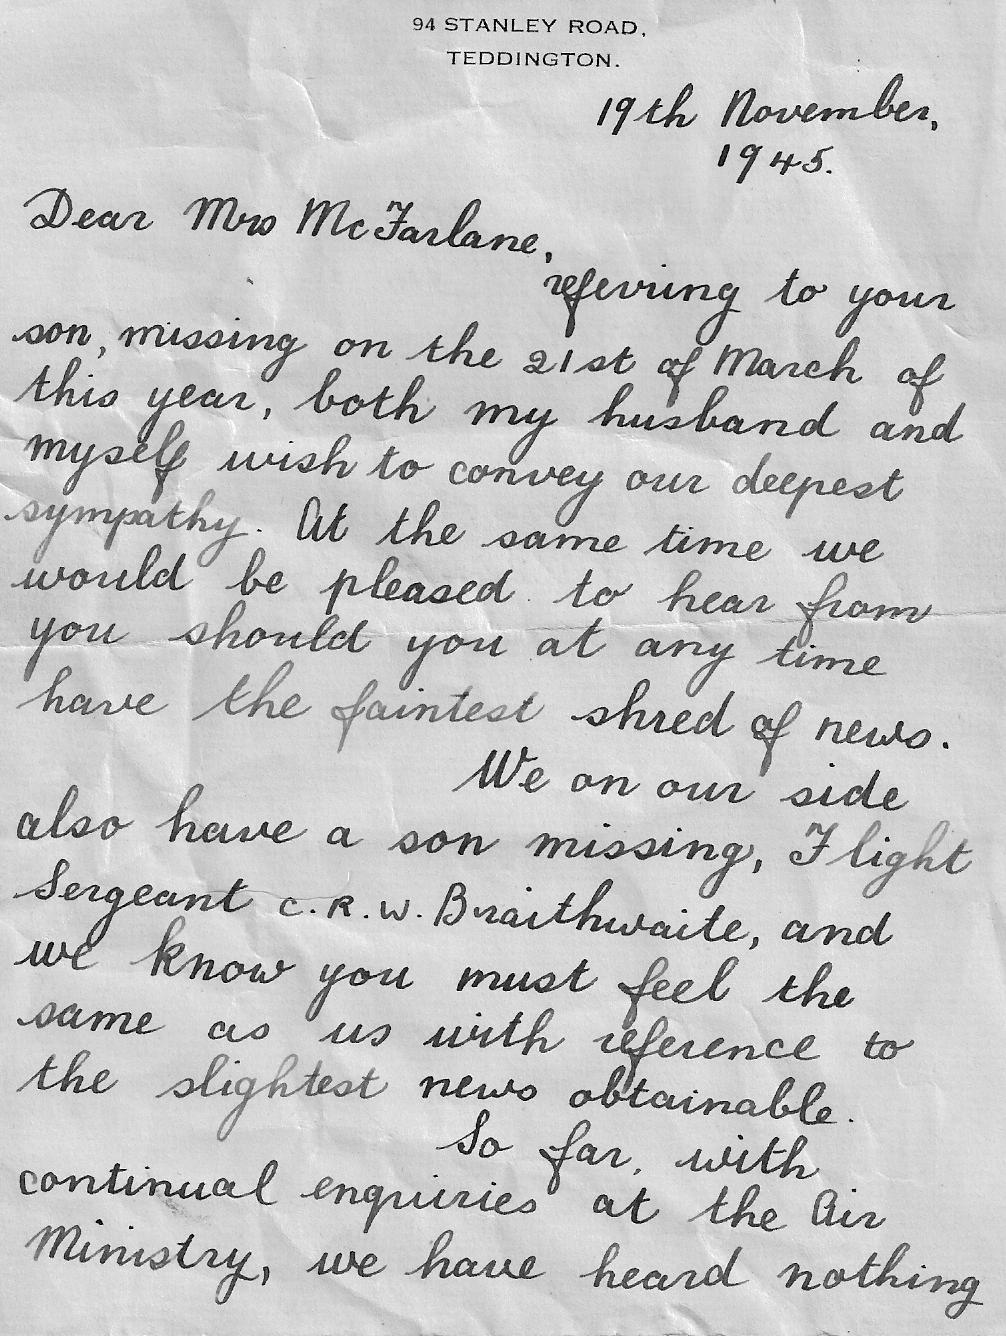 94 STANLEY ROAD,
TEDDINGTON.
19th November,
1945.
Dear Mrs McFarlane,
referring to your
son, missing on the 21st of March of
this year, both my husband and
myself wish to convey our deepest
sympathy. At the same time we
would be pleased to hear from
you should you at any time
have the faintest shred of news.
We on our side
also have a son missing, Flight
Sergeant C.R.W. Braithwaite, and
we know you must feel the
same as us with reference to
the slightest news obtainable.
So far, with
continual enquiries at the Air
Ministry, we have heard nothing